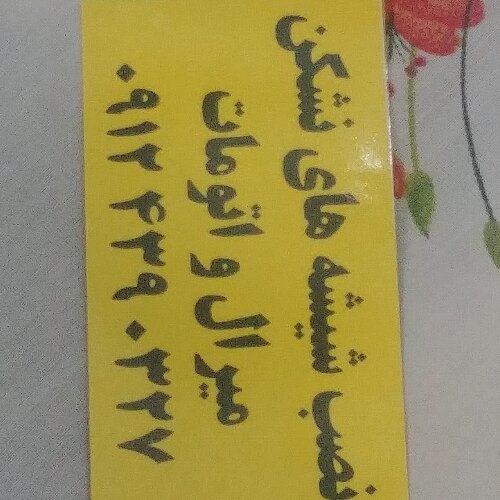 نصب شیشه های نشکن
میرال و اتومات
۰۹۱۲ ۴۳۹ ۰۳۲۷